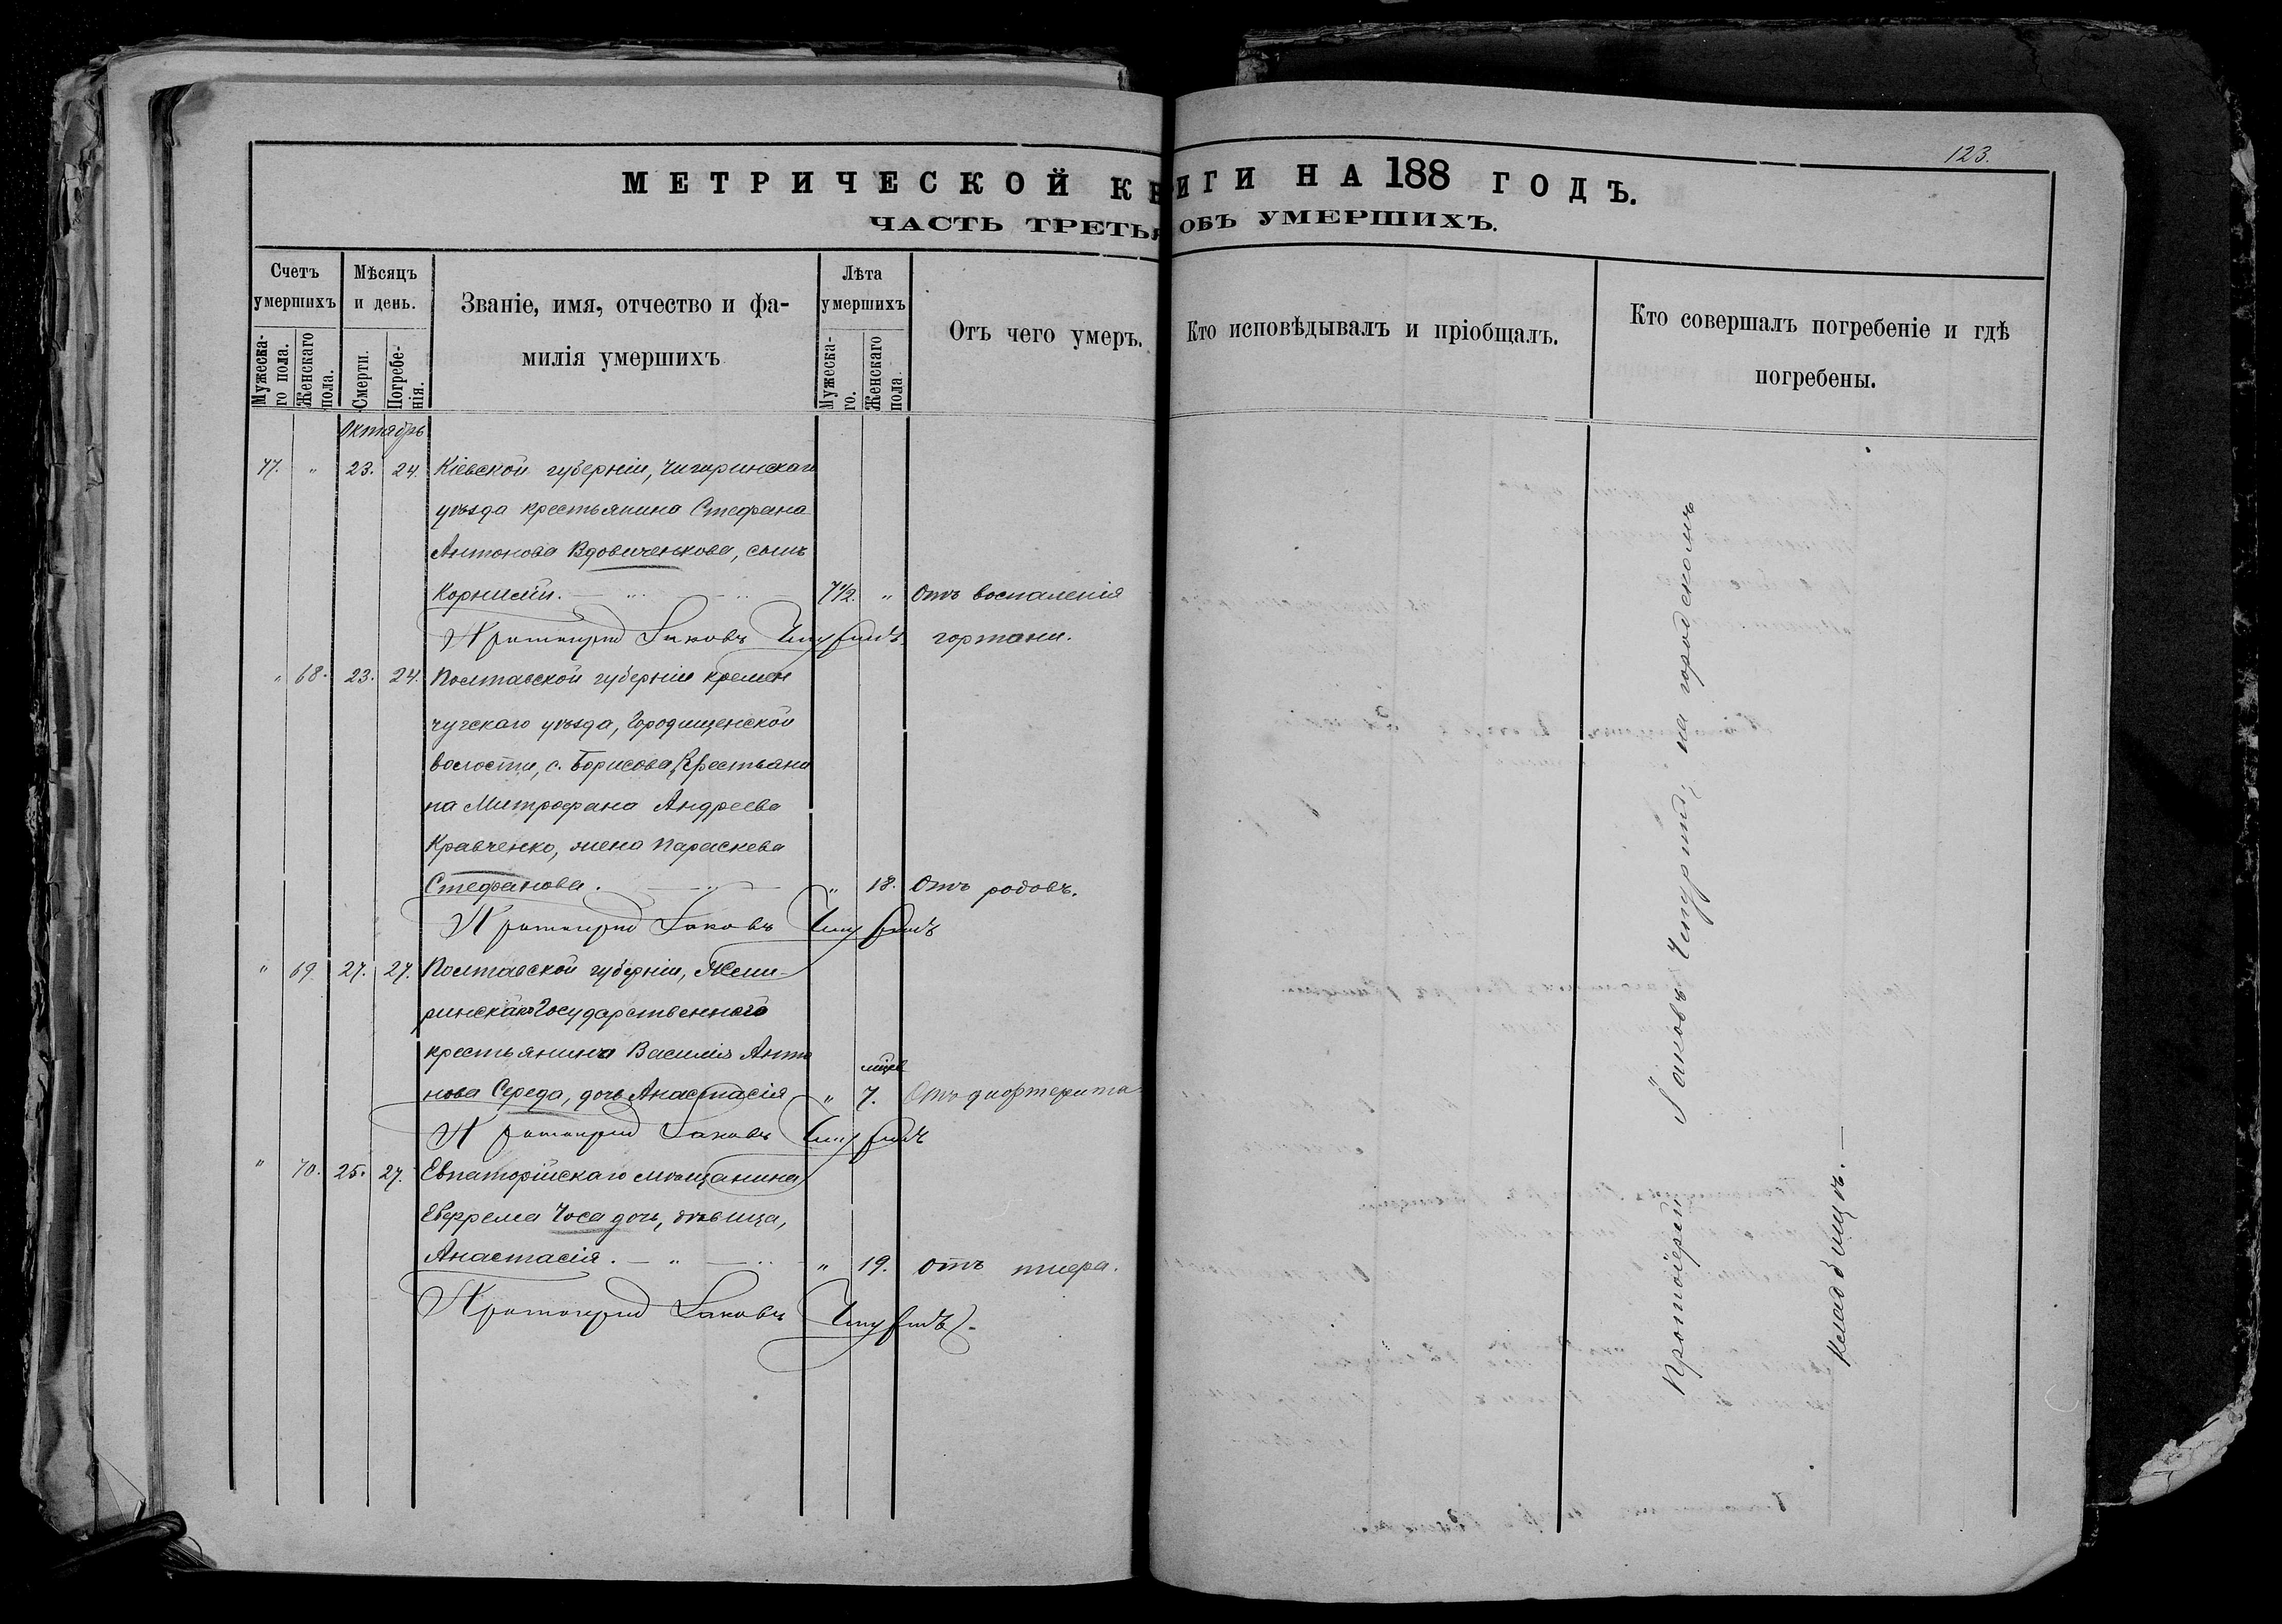 123.
МЕТРИЧЕСКОЙ КНИГИ НА 188 ГОДЪ.
ЧАСТЬ ТРЕТЬЯ ОБЪ УМЕРШИХЪ.
Счетъ умершихъ
Мужеска-
го пола.
Женскаго
пола.
Мѣсяцъ и день.
Смерти.
Погребе-
нія.
Званіе, имя, отчество и фа-
милія умершихъ
Лѣта умершихъ
Мужеска-
го.
Женскаго
пола.
Отъ чего умеръ.
Кто исповѣдывалъ и пріобщалъ.
Кто совершалъ погребеніе и гдѣ
погребены.
Октябрь
77. " 23. 24. Кіевской губерніи, Чигиринскаго
уѣзда крестьянина Стефана
Антонова Вдовиченкова, сынъ
Корнилій. 7 1/2. " Отъ воспаленія
Протоіерей Іаковъ гортани.
" 68. 23. 24. Полтавской губерніи кремен
чугскаго уѣзда, Городищенской
волости, с. Борисова, Крестьяни
на Митрофана Андреева
Кравченко, жена Параскева
Стефанова. " 18. Отъ родовъ.
Протоіерей Іаковъ
" 69. 27. 27. Полтавской губерніи,
Государственного
крестьянина Василія Анто
нова Середа, дочь Анастасія " 7. Отъ дифтерита
Протоіерей Іаковъ
" 70. 25. 27. Евпаторійскаго мѣщанина
Чоса дочь, дѣвица,
Анастасія. " 19. отъ тифа.
Протоіерей Іаковъ
Протоіерей Іаковъ Чепуринъ, на городскомъ
кладбищѣ.